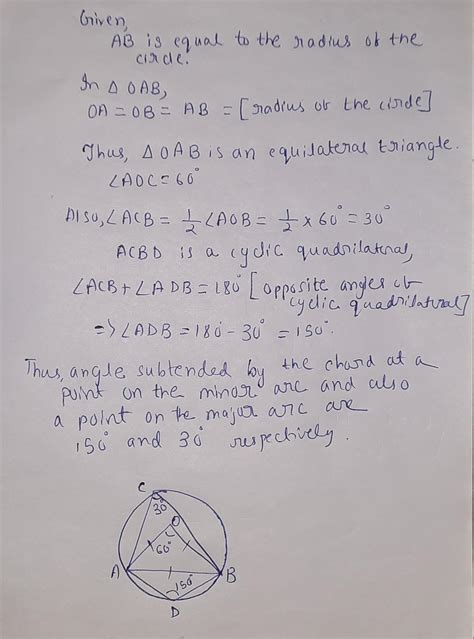 Given,
AB is equal to the radius of the
circle.
In △OAB,
OA = OB = AB = [radius of the circle]
Thus, △OAB is an equilateral triangle.
∠AOC = 60°
Also, ∠ACB = 1/2 ∠AOB = 1/2 × 60° = 30°
ACBD is a cyclic quadrilateral,
∠ACB + ∠ADB = 180° [opposite angles of
cyclic quadrilateral]
=> ∠ADB = 180 - 30° = 150°.
Thus, angle subtended by the chord at a
point on the minor arc and also
a point on the major arc are
150° and 30° respectively.
C
30°
O
60°
A
B
150°
D